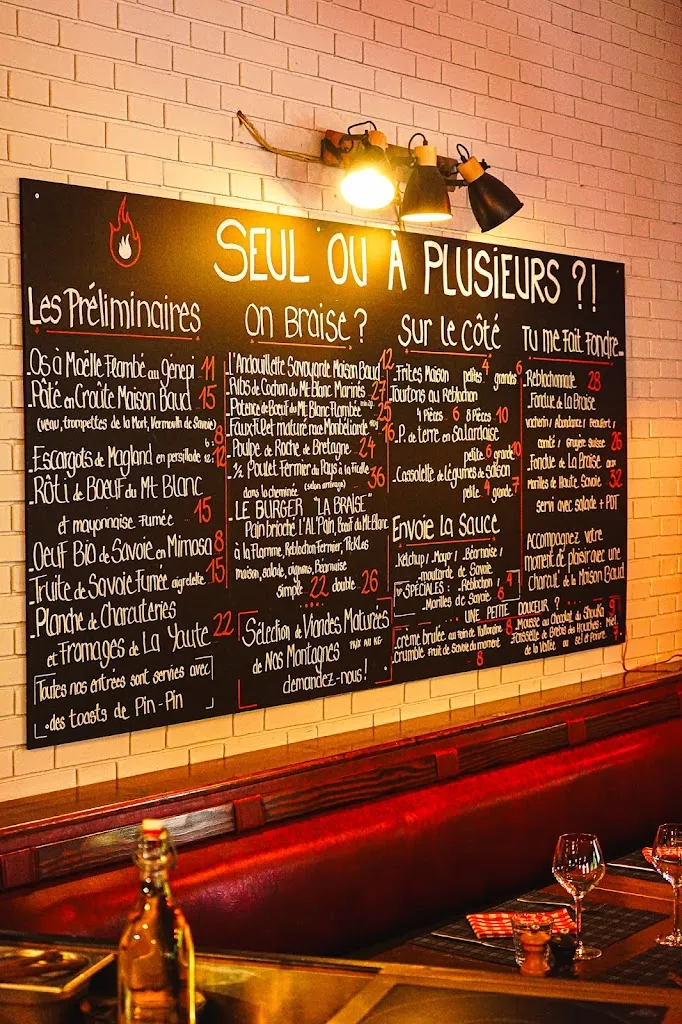 SEUL OU À PLUSIEURS ?!
Les Préliminaires
_Os à Moëlle Flambé au génepi 11
_Pâté en Croûte Maison Baud 15
(veau, trompettes de la Mort, Vermouth de Savoie)
_Escargots de Magland en persillade 6: 8 12: 12
_Rôti de Boeuf du Mt Blanc
et mayonnaise fumée 15
_Oeuf Bio de Savoie en Mimosa 8
_Truite de Savoie Fumée aigrelette 15
_Planche de Charcuteries
et Fromages de La Yaute 22
Toutes nos entrées sont servies avec
des toasts de Pin-Pin
On Braise ?
_L'Andouillette Savoyarde Maison Baud 12
_Ribs de Cochon du Mt Blanc Marinés 27
_Potence de Boeuf du Mt Blanc Flambée 25
_Faux Filet maturé race Montbéliarde 16
_Poulpe de Roche de Bretagne 24
_½ Poulet Fermier du Pays à la Ficelle 36
dans la cheminée (selon arrivage)
_LE BURGER "LA BRAISE"
Pain brioché L'Al'Pain, Boeuf du Mt Blanc
à la Flamme, Reblochon Fermier,
maison, salade, oignons, Béarnaise
simple 22 double 26
Sélection de Viandes Maturées
de Nos Montagnes PRIX AU KG
demandez-nous !
Sur le Côté
_Frites Maison petites 4 grandes 6
_Tourtons au Reblochon
4 Pièces 6 8 Pièces 10
_P. de terre en Salardaise
petite 6 grande 10
_Cassolette de Légumes de Saison
petite 4 grande 7
Envoie la Sauce
_Ketchup / Mayo / Béarnaise /
moutarde de Savoie
SPÉCIALES : _Reblochon / 4
_Morilles de Savoie 6
Tu me fait fondre...
_Reblochonnade 28
_Fondue de La Braise
vacherin / Abondance / Beaufort /
comté / gruyère Suisse 26
_Fondue de La Braise aux
Morilles de Haute Savoie 32
servi avec salade + PDT
Accompagnez votre
moment de plaisir avec une
charcut' de la Maison Baud
UNE PETITE DOUCEUR ?
_Crème brulée au foin de Vallorcine 8
_Crumble Fruit de Savoie du moment 8
_Mousse au Chocolat du Shouka 9
_Faisselle de Brebis des Houches : Miel
de la Vallée ou sel et Poivre 7